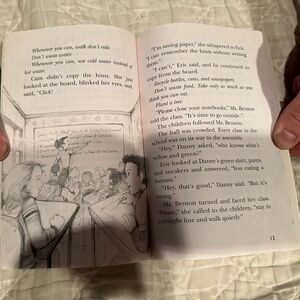 Whenever you can, walk don't ride.
Don't waste water.
Whenever you can, use cold water instead of
hot water.
Cam didn't copy the hints. She just
looked at the board, blinked her eyes, and
said, "Click!"
"I'm saving paper," she whispered to Eric.
"I can remember the hints without writing
them."
"I can't," Eric said, and he continued to
copy from the board.
Recycle bottles, cans, and newspapers.
Don't waste food. Take only as much as you
think you can eat.
Plant a tree.
"Please close your notebooks," Ms. Benson
told the class. "It's time to go outside."
The children followed Ms. Benson.
The hall was crowded. Every class in the
school was on its way to the assembly.
"Hey," Danny asked, "who knows what's
yellow and green?"
Eric looked at Danny's green shirt, pants,
and sneakers and answered, "You eating a
banana."
"Hey, that's good," Danny said. "But it's
wrong."
Ms. Benson turned and faced her class.
"Please," she called to the children, "stay in
a straight line and walk quietly."
13